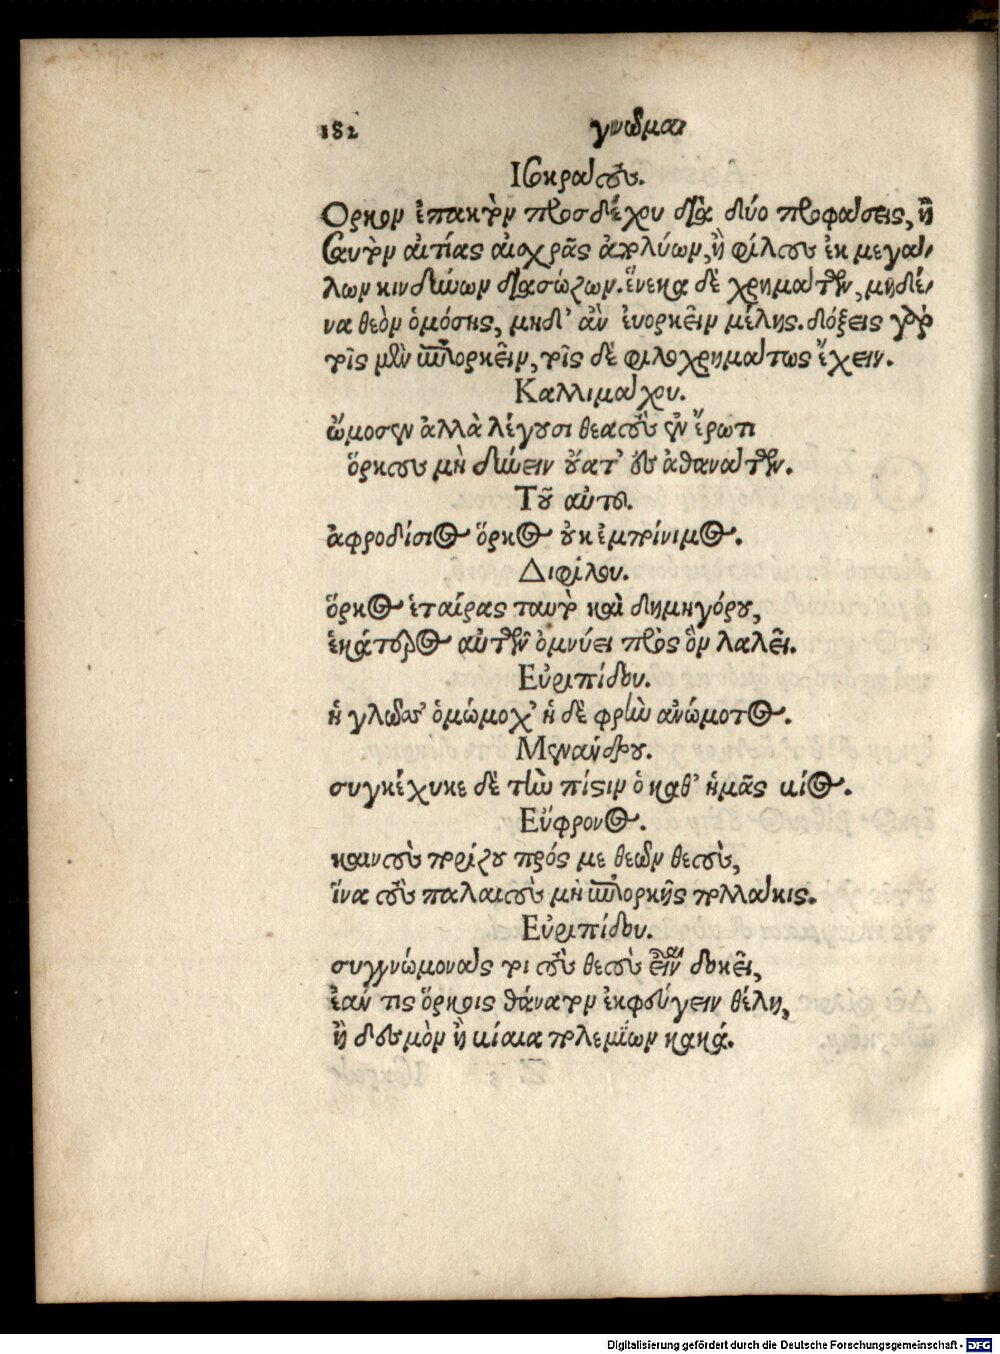 182 γνῶμαι
Ισοκράτους.
Ορκον ἐπακτὸν προσδέχου διὰ δύο προφάσεις, ἢ
σαυτὸν αἰτίας αἰσχρᾶς ἀπολύων, ἢ φίλους ἐκ μεγά-
λων κινδύνων διασώζων. ἕνεκα δὲ χρημάτων, μηδέ-
να θεὸν ὀμόσῃς, μηδ' ἂν ἐυορκεῖν μέλῃς. δόξεις γὰρ
τοῖς μὲν ἐπιορκεῖν, τοῖς δὲ φιλοχρημάτως ἔχειν.
Καλλιμάχου.
ὤμοσεν ἀλλὰ λέγουσι θεατοὺς ἐν ἔρωτι
ὅρκους μὴ δύνειν οὔατ' ἐς ἀθανάτων.
Τοῦ αὐτοῦ.
ἀφροδίσιος ὅρκος οὐκ ἐμποίνιμος.
Διφίλου.
ὅρκος ἑταίρας ταυτὸ καὶ δημηγόρου,
ἑκάτερος αὐτῶν ὀμνύει πρὸς ὃν λαλεῖ.
Εὐριπίδου.
ἡ γλῶσσ' ὀμώμοχ' ἡ δὲ φρὴν ἀνώμοτος.
Μενάνδρου.
συγκέχυκε δὲ τὴν πίστιν ὁ καθ' ἡμᾶς βίος.
Εὔφρονος.
καινοὺς πορίζου πρός με θεῶν θεοὺς,
ἵνα τοὺς παλαιοὺς μὴ ἐπιορκῇς πολλάκις.
Εὐριπίδου.
συγγνώμονάς τοι τοὺς θεοὺς εἶναι δοκεῖ,
ἐάν τις ὅρκοις θάνατον ἐκφεύγειν θέλῃ,
ἢ δεσμὸν ἢ βίαια πολεμίων κακά.
Digitalisierung gefördert durch die Deutsche Forschungsgemeinschaft - DFG